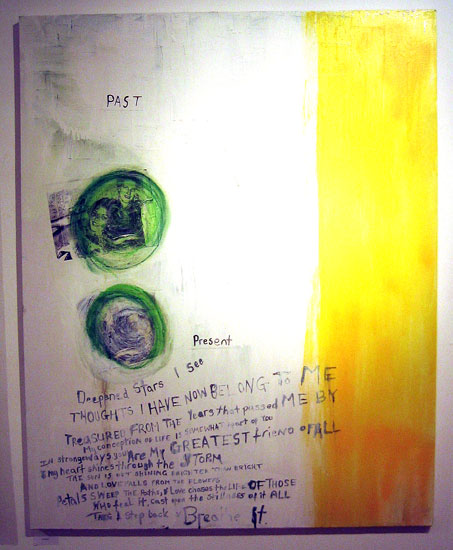 PAST
Present
Deepened Stars I See
THOUGHTS I HAVE NOW BELONG TO ME
TREASURED FROM THE Years that passed ME BY
My conception OF LIFE IS SOMEWHAT apart OF YOU
In strange ways you ARE My GREATEST friend OF ALL
my heart shines through the STORM
THE SUN IS YET SHINING BRIGHT
AND LOVE FALLS FROM THE FLOWERS
Petals SWEEP THE Paths, & Love Chases the LIFE OF THOSE
WHO feel it, cast upon the stillness of it ALL
I step back &
Breathe It.